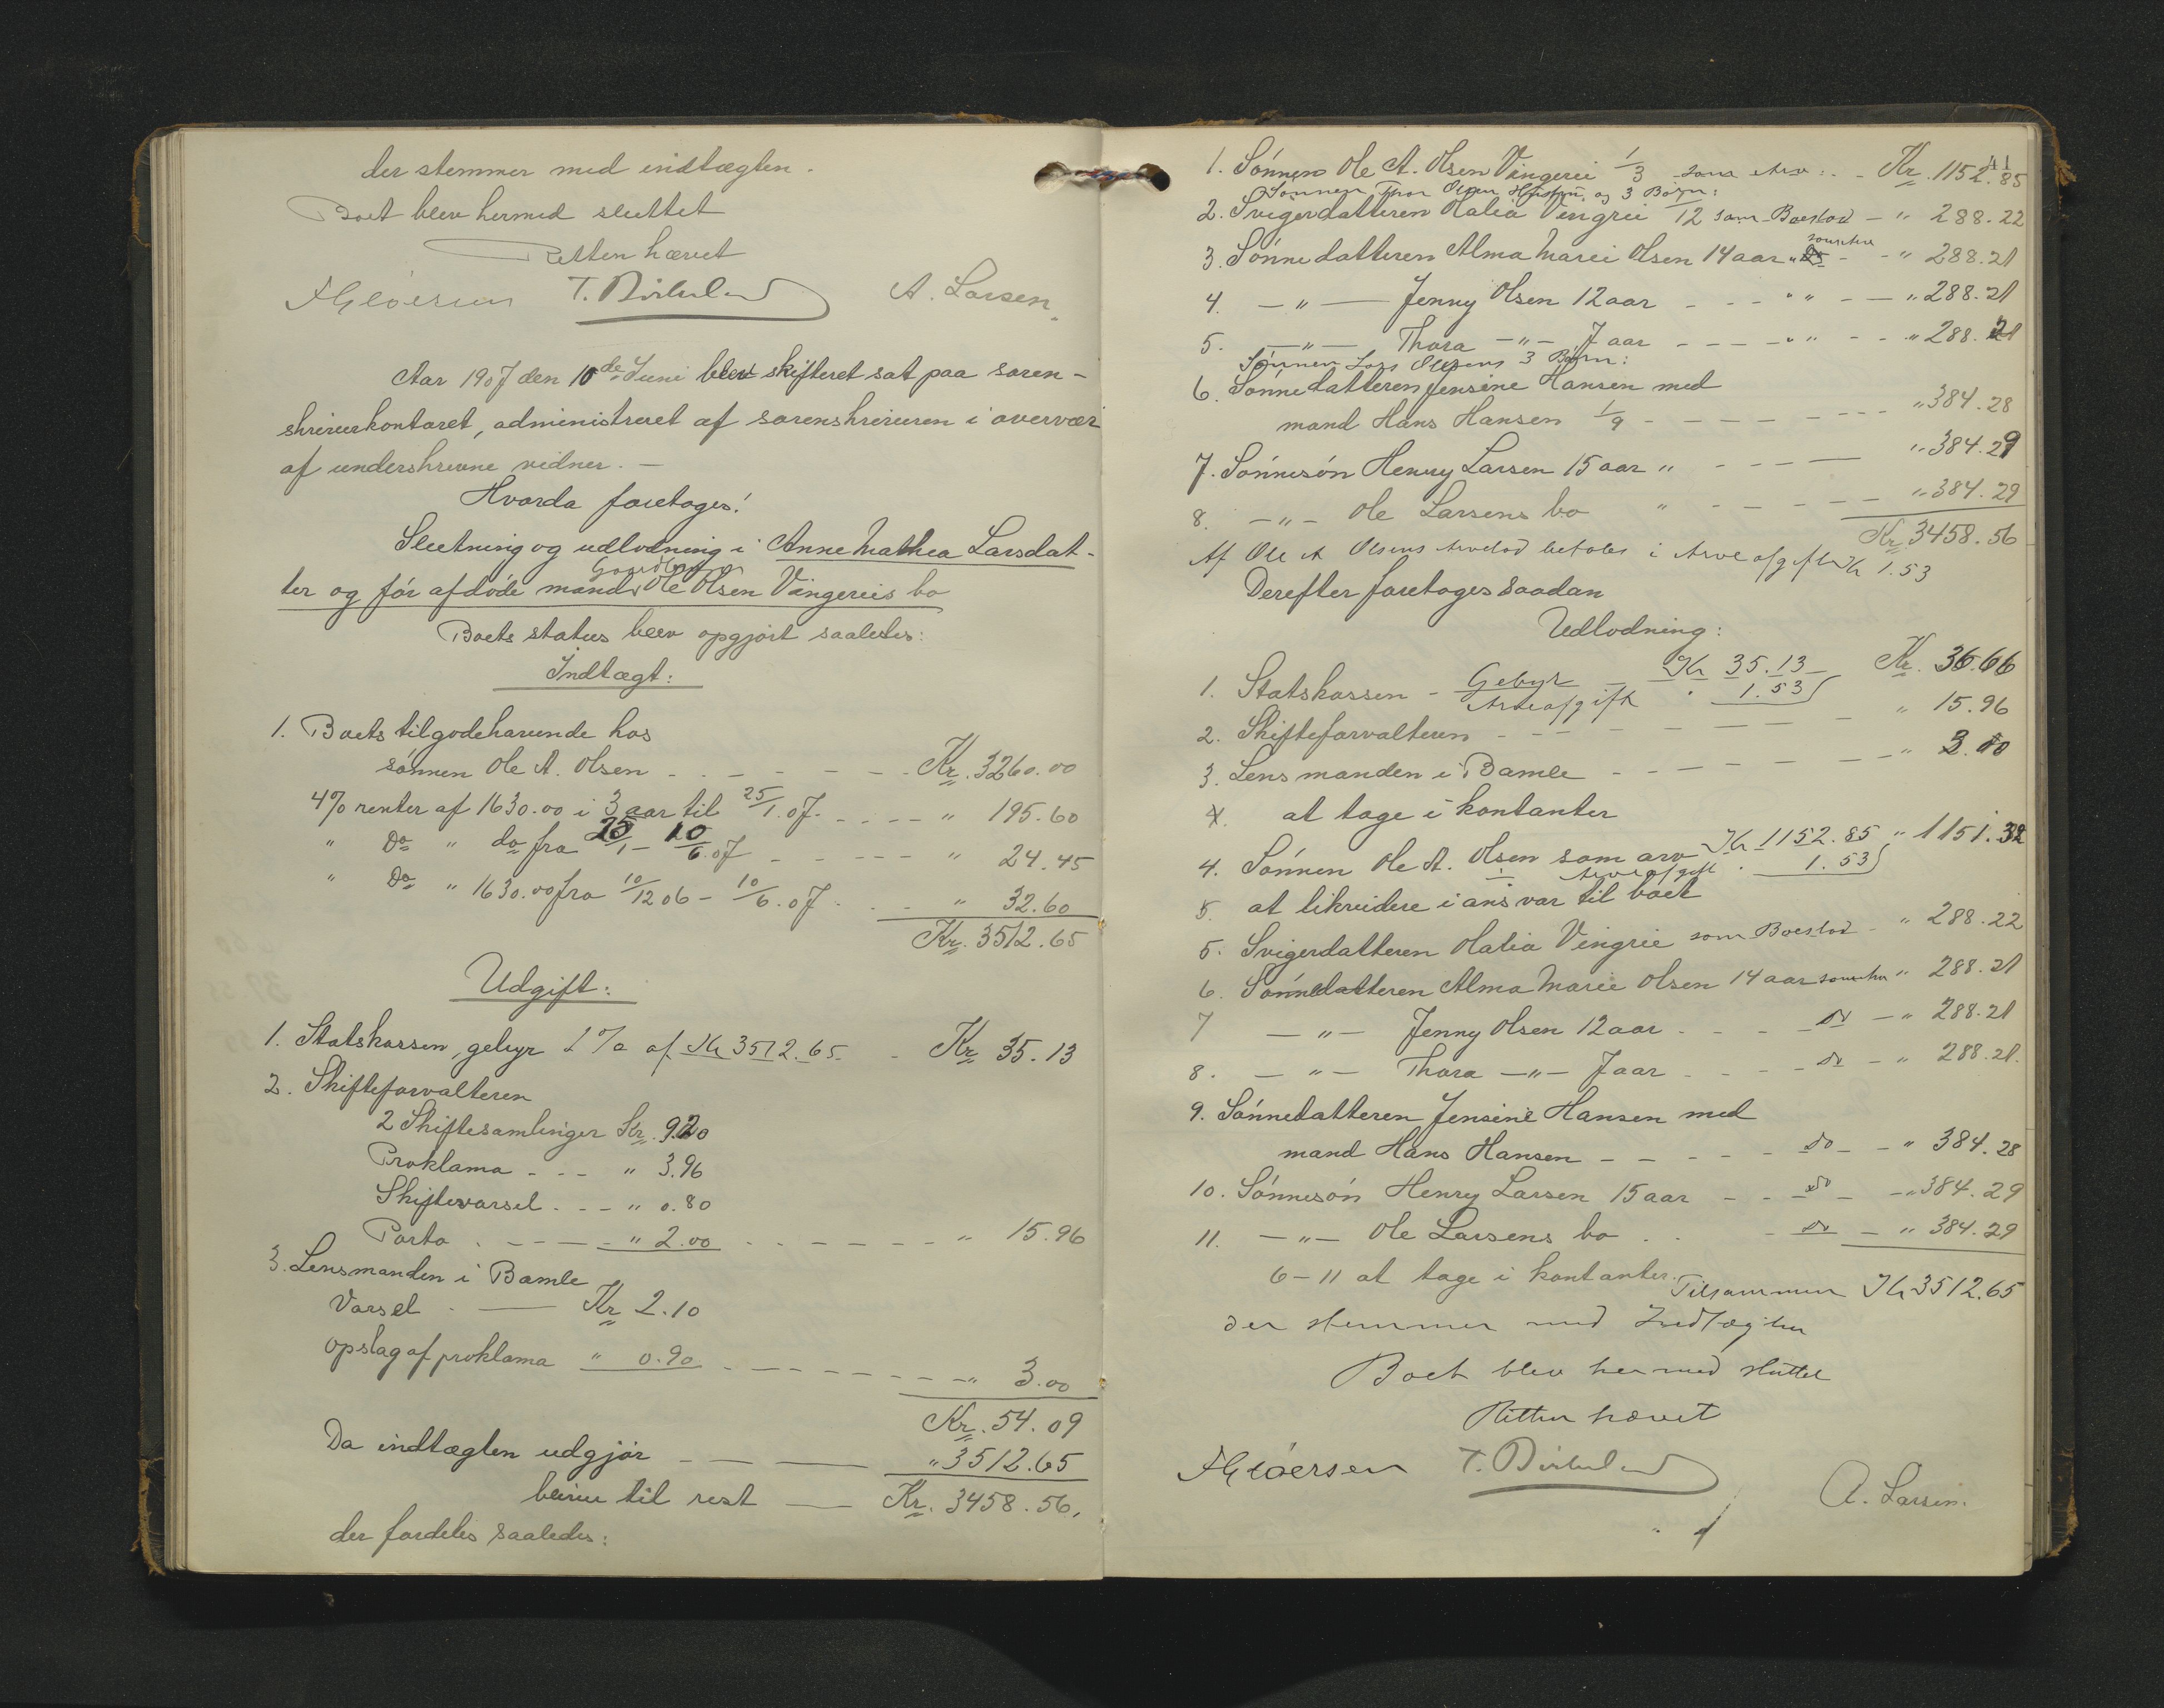 der stemmer med indtægten.
Boet blev hermed sluttet
Retten hævet
A. Larsen.
Aar 1907 den 10de Juni blev skifteret sat paa soren-
skriverkontoret, administreret af sorenskriveren i overvær
af underskrevne vidner. —
Hvorda foretoges:
Slutning og udlodning i Anne Mathea Larsdat-
ter og før afdøde mand Ole Olsen Vingereis bo
Boets status blev opgjort saaledes:
Indtægt:
1. Boets tilgodehavende hos
sønnen Ole A. Olsen - - - - Kr. 3260.00
4% renter af 1630.00 i 3 aar til 25/1.07 - - - - " 195.60
" Do " do fra 25/1 – 10/6.07 - - - - " 24.45
" Do " 1630.00 fra 10/12 06 – 10/6.07 - - " 32.60
Kr. 3512.65
Udgift:
1. Statskassen, gebyr 1 % af Kr 3512.65 - Kr 35.13
2. Skifteforvalteren
2 Skiftesamlinger Kr. 9.20
Proklama - - - " 3.96
Skiftevarsel - - - " 0.80
Porto - - - - " 2.00 - - - - " 15.96
3. Lensmanden i Bamle
Varsel - — Kr 2.10
opslag af proklama " 0.90 - - - - " 3.00
Kr. 54.09
Da indtægten udgjør — — — " 3512.65
bliver til rest — Kr. 3458.56.
der fordeles saaledes:
1. Sønnen Ole A. Olsen Vingerei 1/3 som Arv: - Kr. 1152.85
Sønnen Thor Olsen Hustru og 3 Børn:
2. Svigerdatteren Olalia Vingrei 1/12 som Boeslod - " 288.22
3. Sønnedatteren Alma Marie Olsen 14 aar " som Arv - " 288.21
4. — " — Jenny Olsen 12 aar - - - " " - — " 288.21
5. — " — Thora — " — 7 aar - - - - " " - - " 288.21
Sønnen Lars Olsens 3 Børn:
6. Sønnedatteren Jensine Hansen med
mand Hans Hansen 1/9 - - - - - " 384.28
7. Sønnesøn Henry Larsen 15 aar " - - - — " 384.29
8. — " — Ole Larsens bo " - - - - " 384.29
Kr. 3458.56
Af Ole A Olsens Arvelod betales i Arveafgift Kr 1.53
Derefter foretoges saadan
Udlodning:
1. Statskassen - Gebyr - Kr 35.13 - Kr. 36.66
Arveafgift " 1.53
2. Skifteforvalteren - - - - " 15.96
3. Lensmanden i Bamle - - - - " 3.00
at tage i kontanter
4. Sønnen Ole A. Olsen som arv Kr 1152.85 " 1151.32
Arveafgift " 1.53
at likvidere i ansvar til boet
5. Svigerdatteren Olalia Vingrie som Boeslod - " 288.22
6. Sønnedatteren Alma Marie Olsen 14 aar som Arv " 288.21
7 — " — Jenny Olsen 12 aar - - - do — " 288.21
8. — " — Thora — " — 7 aar - - - do - " 288.21.
9. Sønnedatteren Jensine Hansen med
mand Hans Hansen - - - - do - " 384.28
10. Sønnesøn Henry Larsen 15 aar - - do - " 384.29
11. — " — Ole Larsens bo - - - do - " 384.29
6–11 at tage i kontanter.
Tilsammen Kr 3512.65
der stemmer med Indtægten
Boet blev hermed sluttet
Retten hævet
A. Larsen.